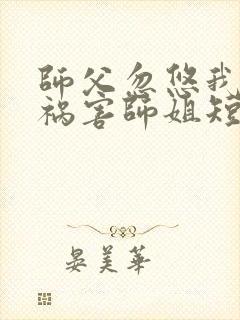 師父忽悠我
祸害師姐短
晏美華